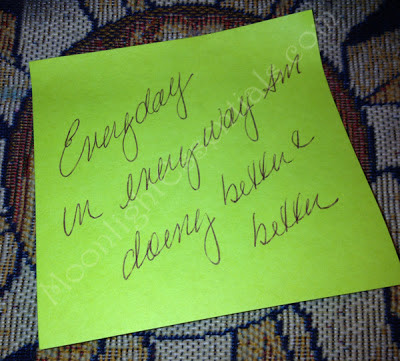 Everyday
in every way Im
doing better &
better